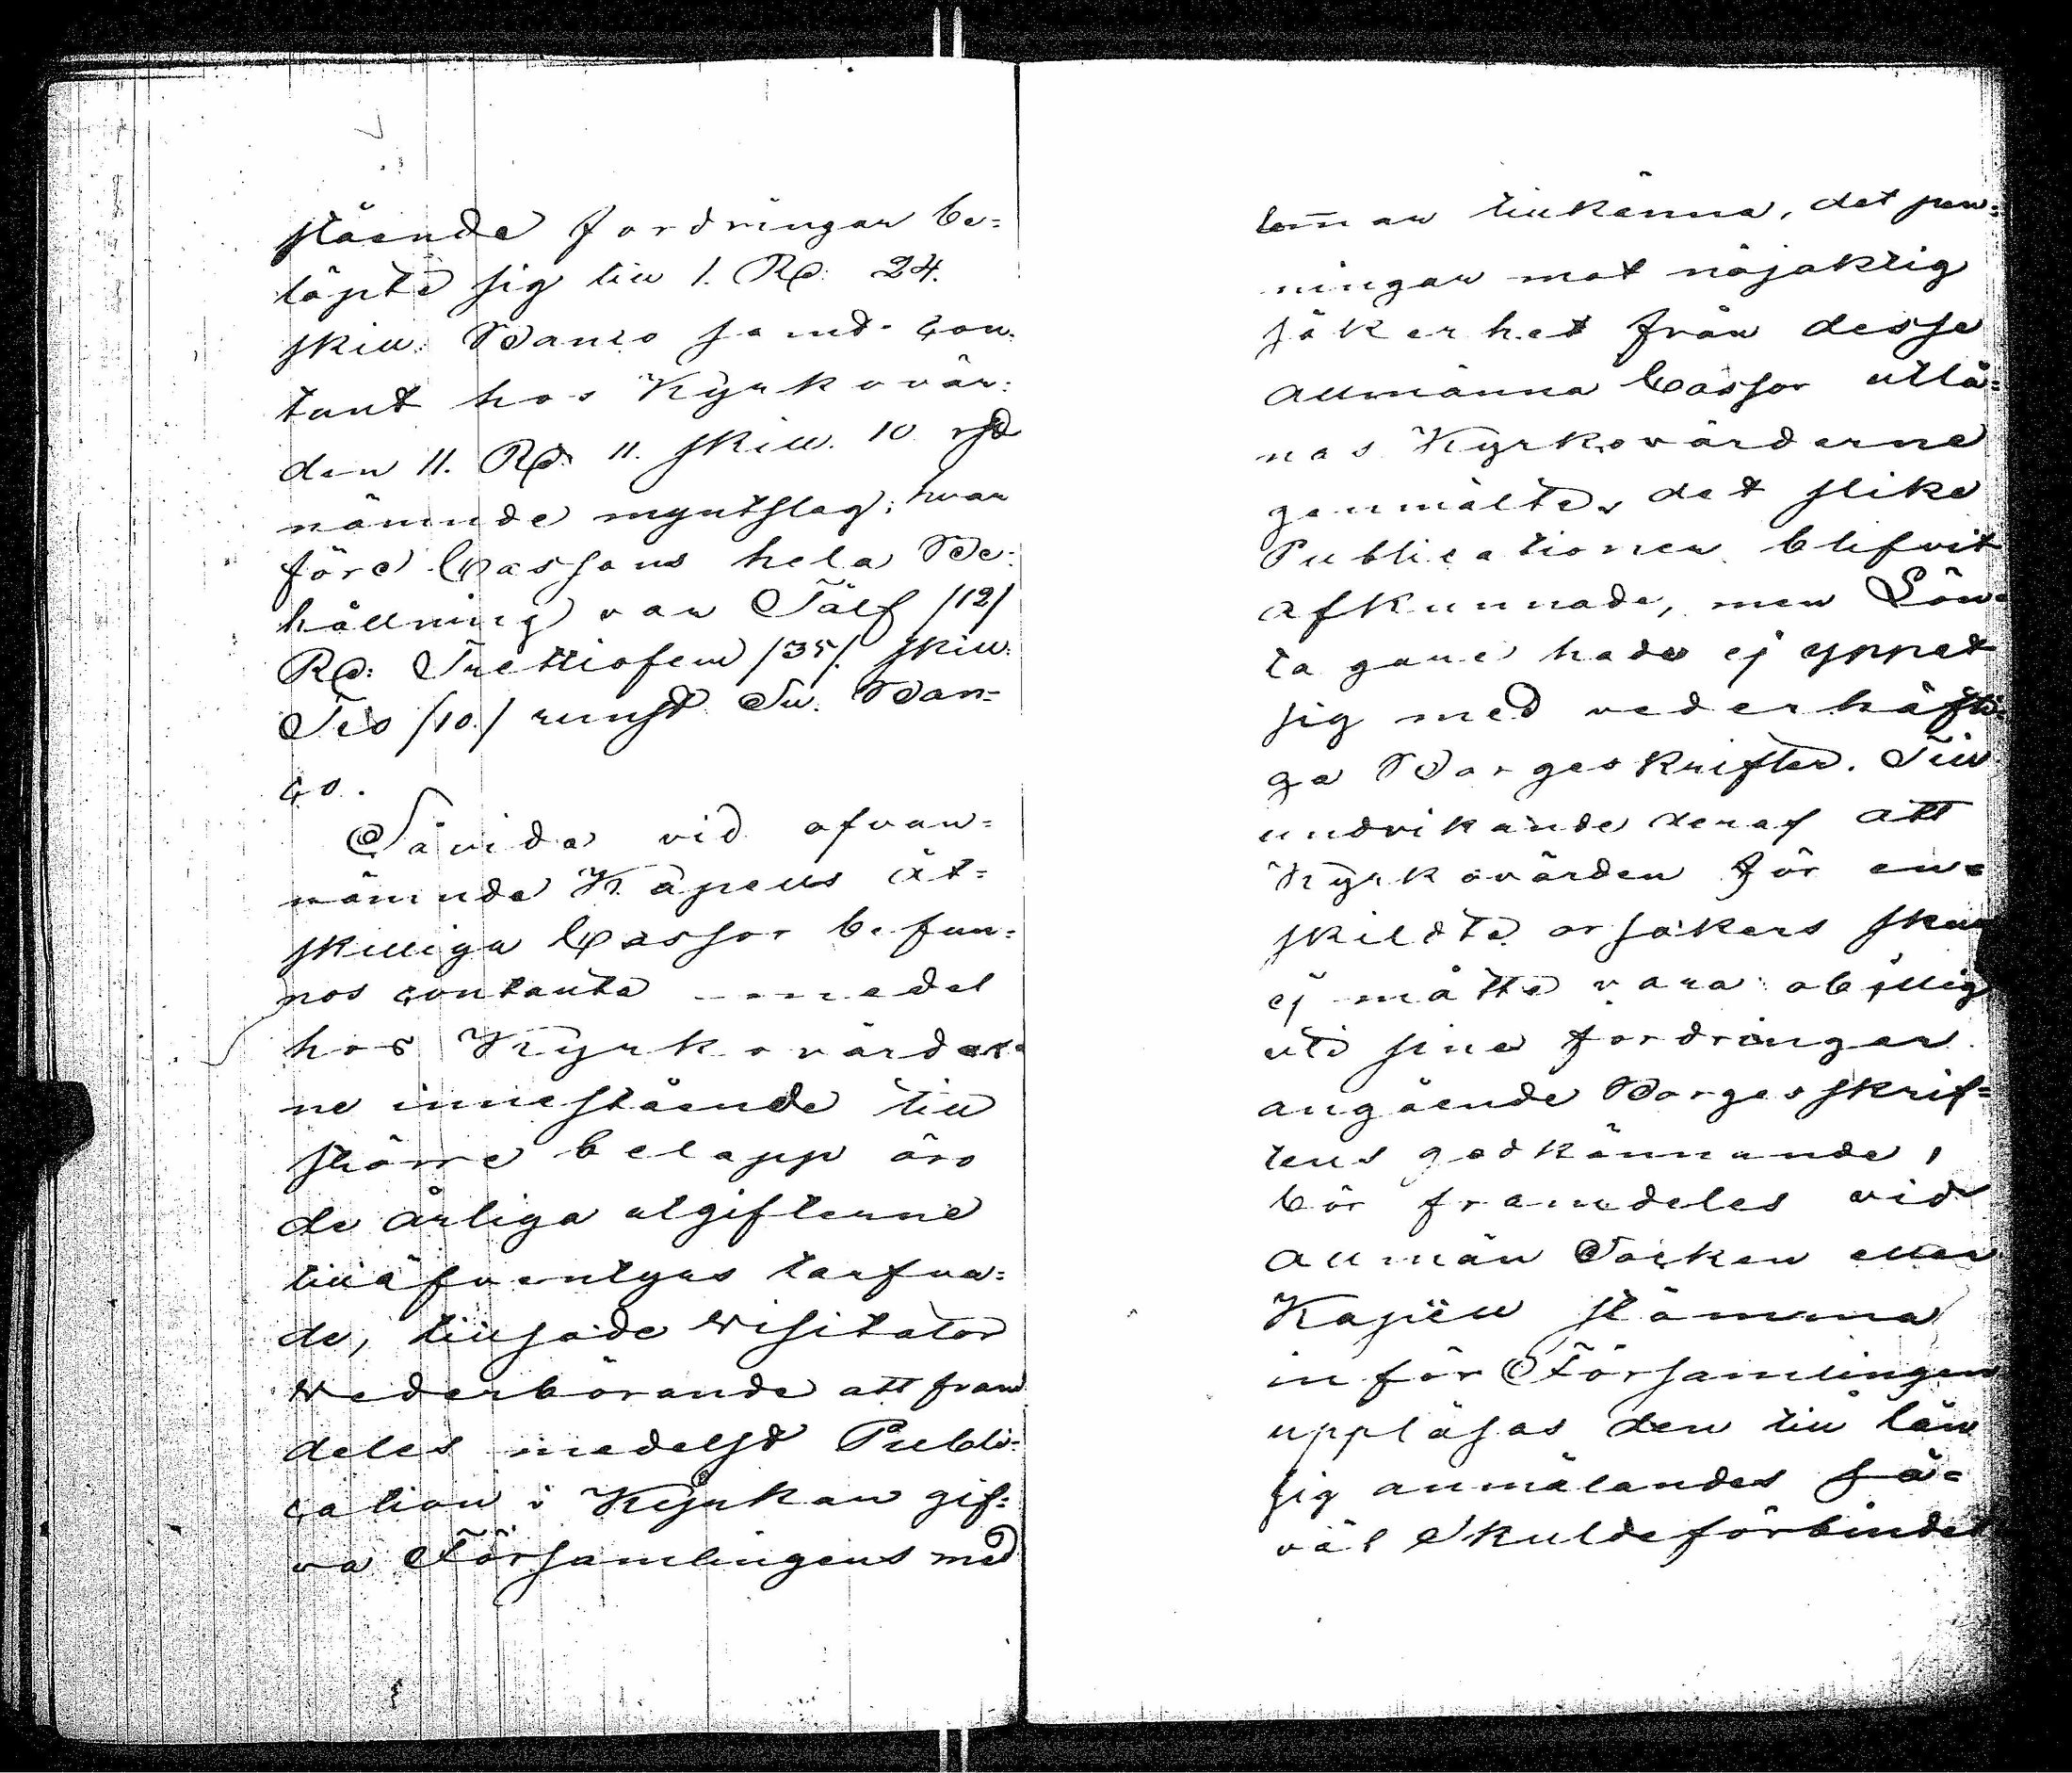 stående fordringar be=
löpte sig till 1. Rd: 24.
skill: Banco samt con-
tant hos Kyrkovär:
den 11. Rd: 11. skill. 10 rst
nämnde myntslag; hvar
före Cassans hela Be-
hållning var Tålf /12/
Rd: Trettiofem /35/. skill:
Tio /10./ runst. Sv. Ban=
co.
Såvida vid ofvan=
nämnde Kapells åt=
skilliga Cassor befun=
nos contanta medel
hos Kyrkovärder-
ne innestående till
större belopp än
de årliga utgifterne
till äfventyrs tarfva=
de, tillsade Visitator
Vederbörande att fram
deles medelst Publi=
cation i Kyrkan gif=
va Församlingens med
lem̄ar tillkänna, det pen=
ningar mot nöjaktig
säkerhet från desse
allmänna Cassor utlå=
nas Kyrkovärderne
genmälte, det slike
Publicationer blifvit
afkunnade, men Lån-
tagare hade ej yppat
sig med vederhäfti=
ga Borgeskrifter. Till
undvikande deraf att
Kyrkovärden för en=
skildte orsakers skull
ej måtte vara obillig
uti sina fordringar
angående Borgesskrif=
tens godkännande,
bör framdeles vid
allmän Socken eller
Kapell stämma
inför Församlingen
uppläsas den till lån
sig anmälandes så=
väl Skuldeförbindel